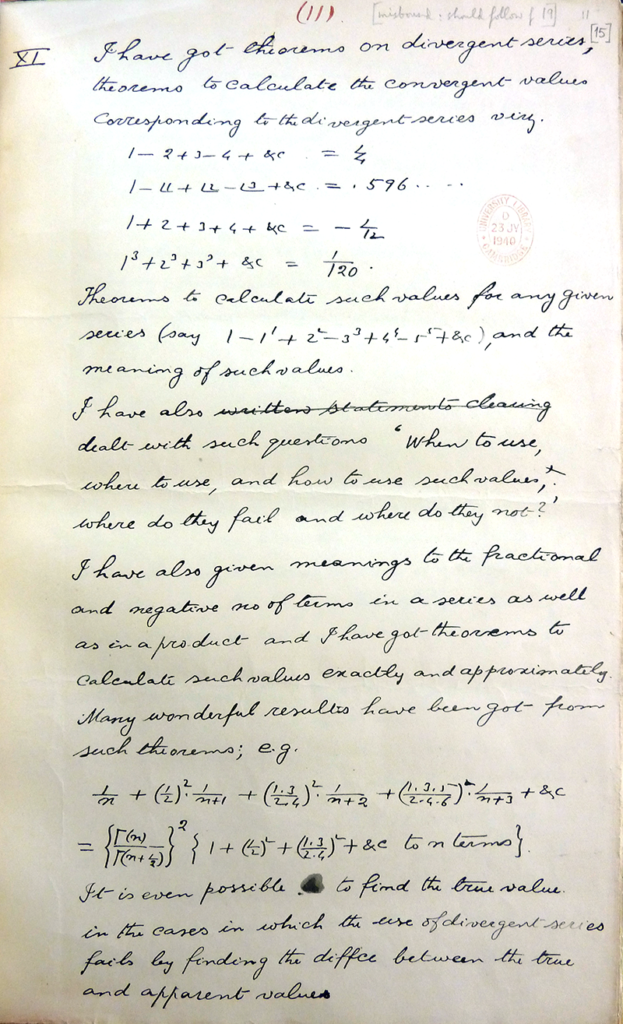 (11) [misbound: should follow f 19] 11
[15]
XI I have got theorems on divergent series,
theorems to calculate the convergent values
corresponding to the divergent series viz.
1 − 2 + 3 − 4 + &c = 1/4
1 − 1! + 2! − 3! + &c = .596.....
1 + 2 + 3 + 4 + &c = − 1/12
1³ + 2³ + 3³ + &c = 1/120.
UNIVERSITY LIBRARY
23 JY
1940
CAMBRIDGE
Theorems to calculate such values for any given
series (say 1 − 1¹ + 2² − 3³ + 4⁴ − 5⁵ + &c), and the
meaning of such values.
I have also written statements clearing
dealt with such questions ‘When to use,
where to use, and how to use such values,
where do they fail and where do they not?’
I have also given meanings to the fractional
and negative no of terms in a series as well
as in a product and I have got theorems to
calculate such values exactly and approximately.
Many wonderful results have been got from
such theorems; e.g.
1/n + (1/2)²·1/(n+1) + (1·3/2·4)²·1/(n+2) + (1·3·5/2·4·6)²·1/(n+3) + &c
= {Γ(n)/Γ(n+1/2)}² {1 + (1/2)² + (1·3/2·4)² + &c to n terms}.
It is even possible to find the true value
in the cases in which the use of divergent series
fails by finding the diffce between the true
and apparent values